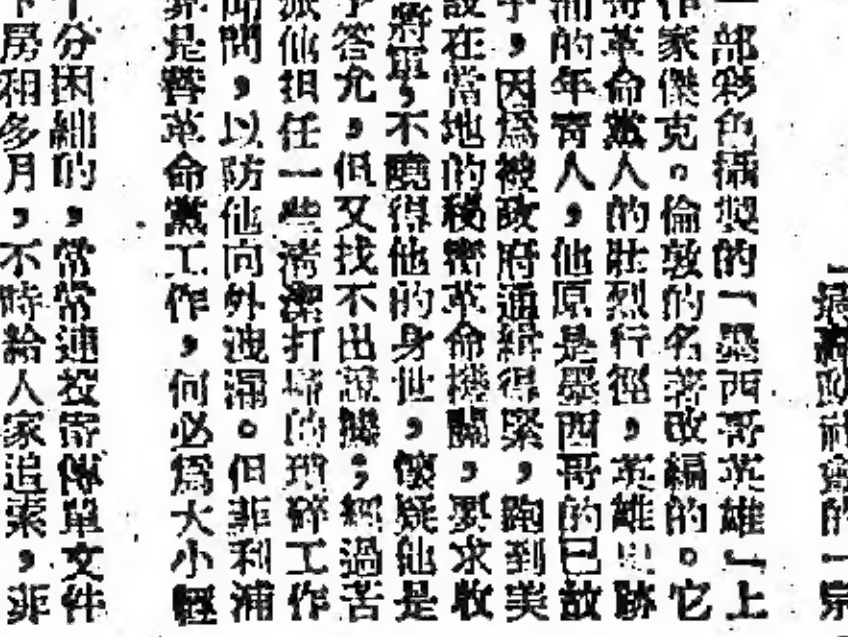 一部彩色攝製的「墨西哥英雄」上
作家傑克。倫敦的名著改編的。它
哥革命黨人的壯烈行徑，英雄史跡
浦的年青人，他原是墨西哥的已故
，因爲被政府通緝得緊，跑到美
設在當地的秘密革命機關，要求收
將軍，不曉得他的身世，懷疑他是
予答允，但又找不出證據；經過苦
派他担任一些清潔打掃的瑣碎工作
問，以防他向外洩漏。但菲利浦
是替革命黨工作，何必爲大小輕
十分困細的，常常連投寄傳單文件
下房租多月，不時給人家追索，菲